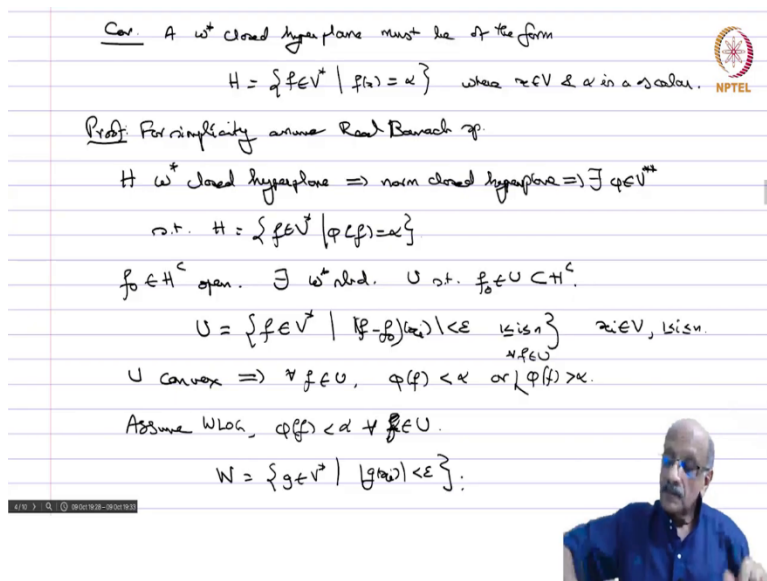 Cor. A w* closed hyperplane must be of the form
H = {f∈V* | f(x) = α} where x∈V & α is a scalar.
NPTEL
Proof: For simplicity assume Real Banach sp.
H w* closed hyperplane => norm closed hyperplane => ∃ φ∈V**
s.t. H = {f∈V* | φ(f)=α}
f₀ ∈ Hᶜ open. ∃ w* nbd. U s.t. f₀∈U⊂Hᶜ.
U = {f∈V* | |(f-f₀)(xᵢ)|<ε 1≤i≤n} xᵢ∈V, 1≤i≤n.
∀f∈U
U convex => ∀ f∈U, φ(f) < α or φ(f) >α.
Assume WLOG, φ(f) <α ∀ f∈U.
W = {g∈V* | |g(xᵢ)| <ε}:
4/10 09 Oct 19:28 - 09 Oct 19:33